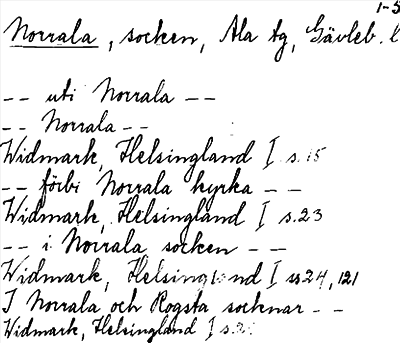 1-5
Norrala, socken, Ala tg, Gävleb. l
-- uti Norrala --
-- Norrala --
Widmark, Helsingland I s. 15
-- förbi Norrala kyrka --
Widmark, Helsingland I s. 23
-- i Norrala socken --
Widmark, Helsingland I ss 24, 121
I Norrala och Rogsta socknar --
Widmark, Helsingland I s.